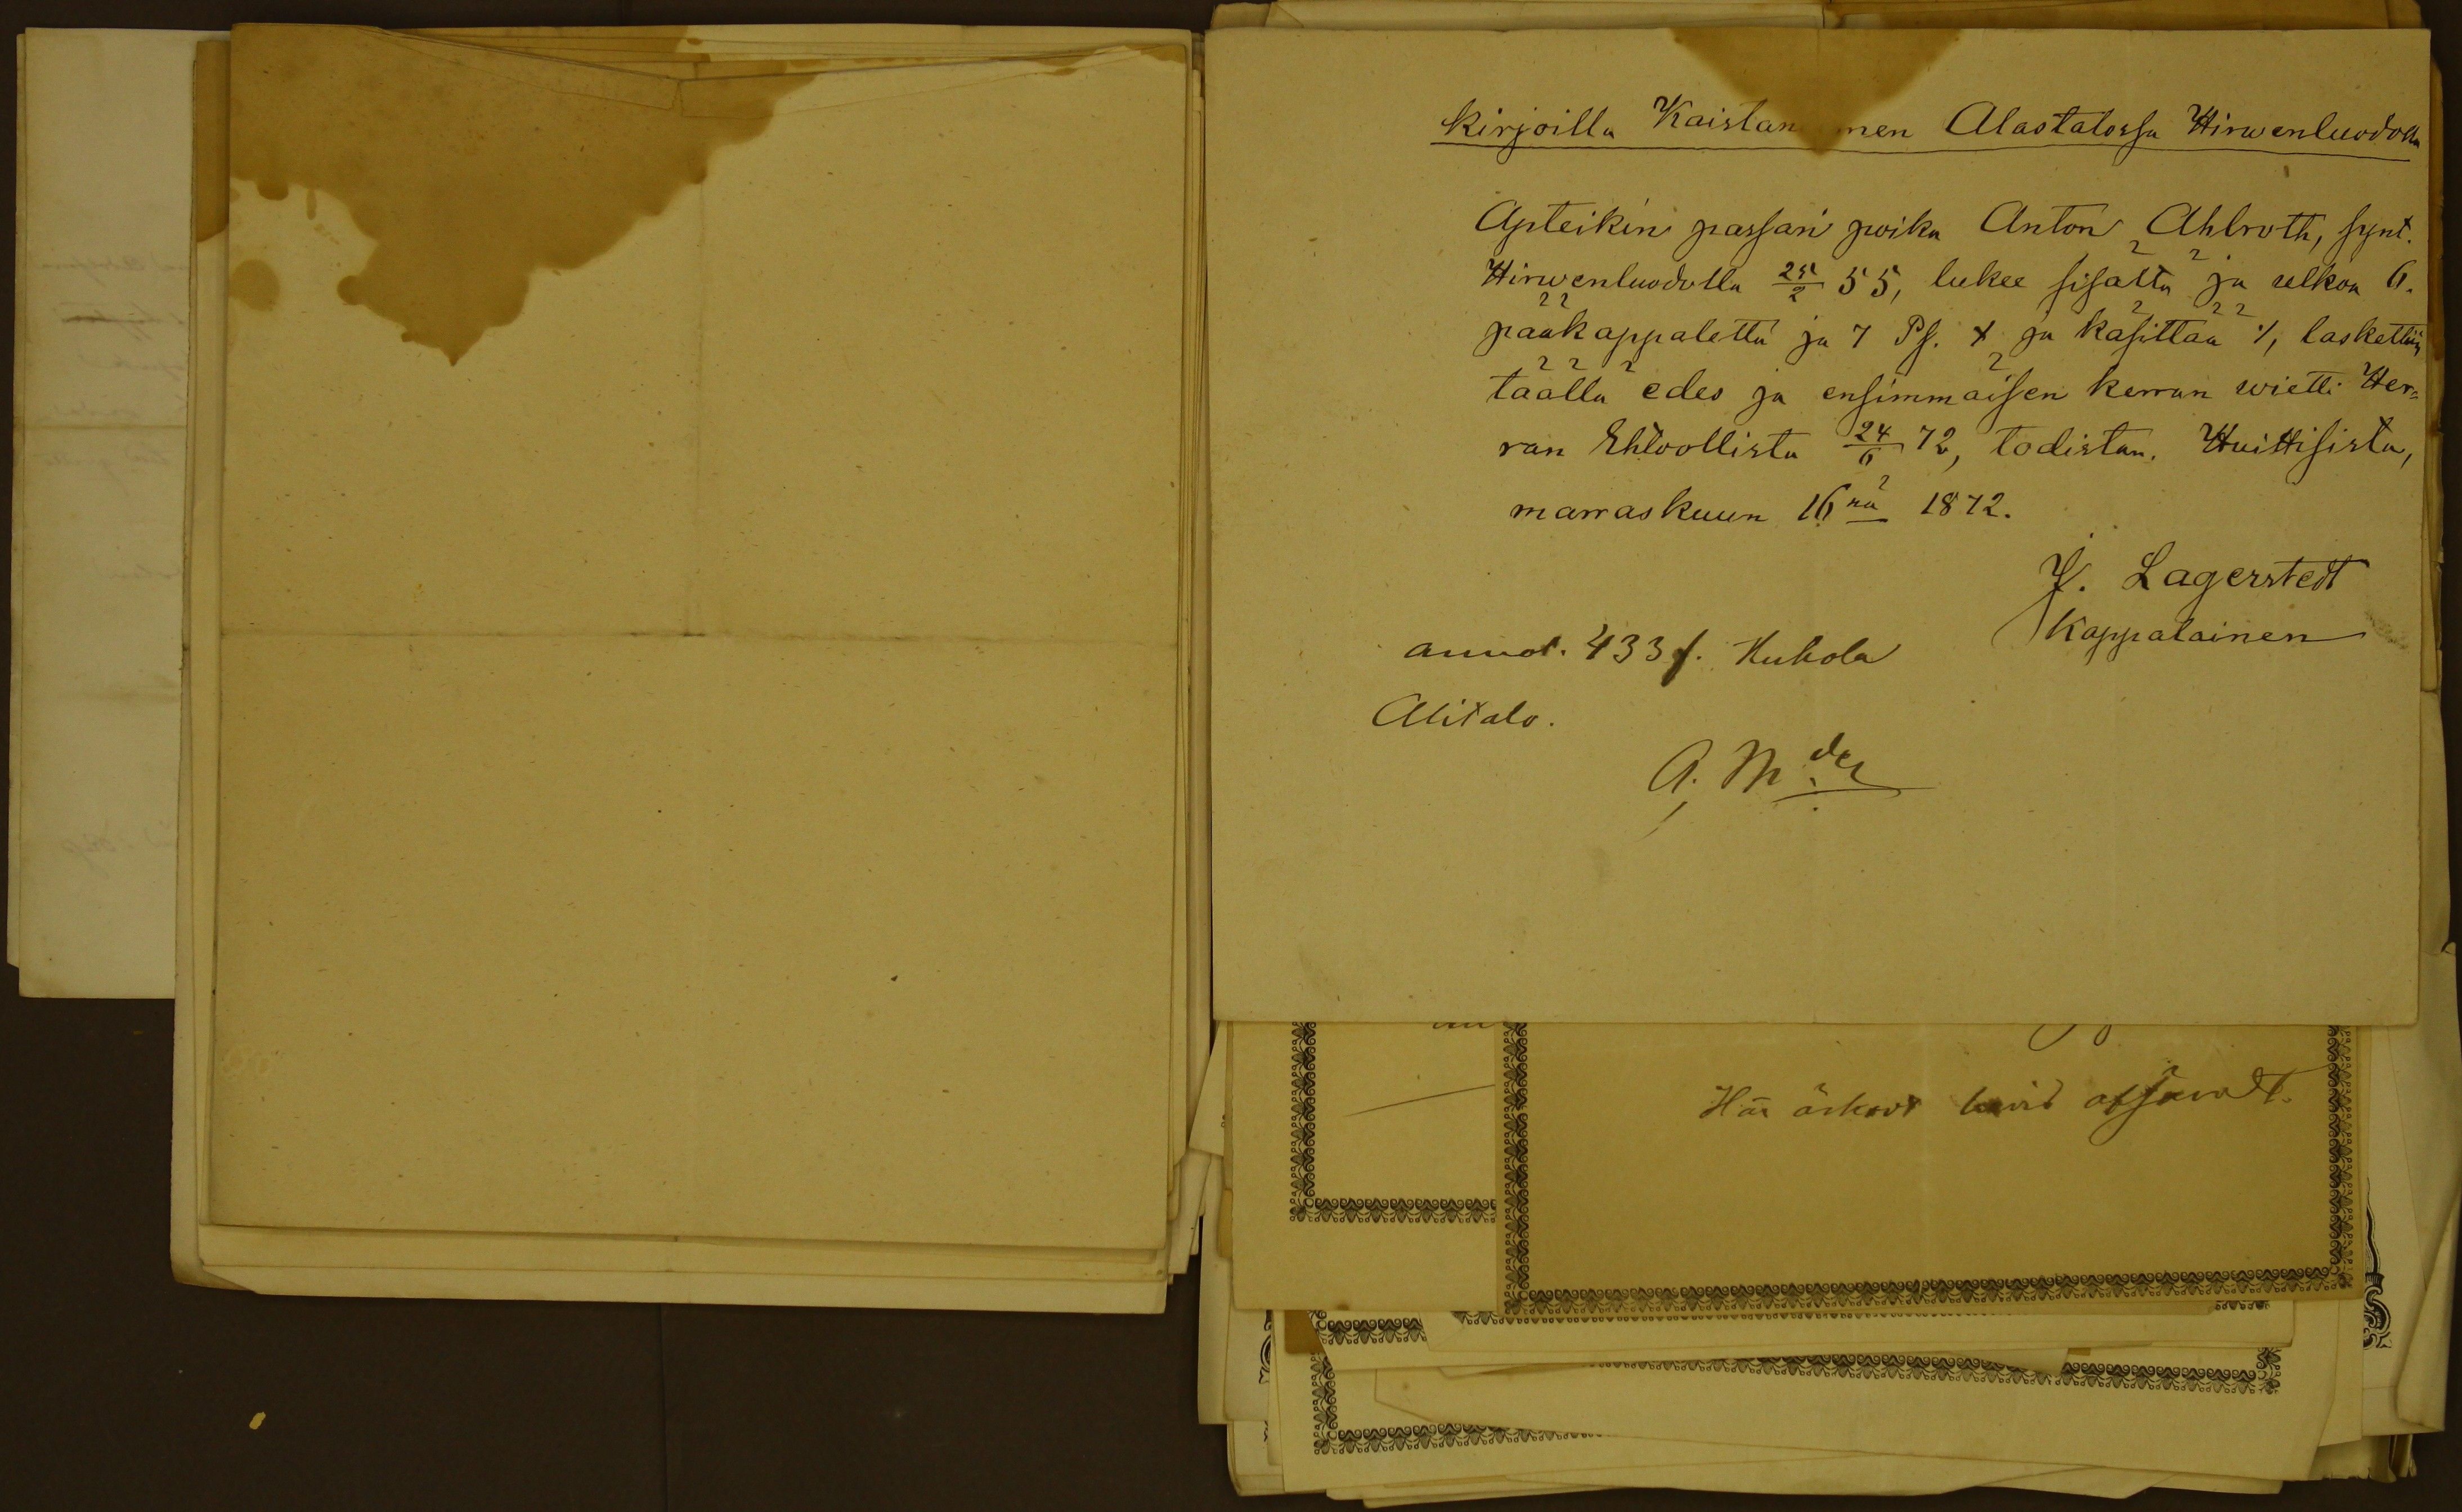 kirjoilla Kaistan men Alastalossa Hirwenluodolla
Apteikin passari poika Anton Ahlroth, synt.
Hirwenluodolla 25/2 55, lukee sisältä ja selkoa 6.
pääkappaletta ja 7 Ps. x ja käsittää ·/, laskettiin
täällä edes ja ensimmäisen kerran wietti Her=
ran Ehtoollista 24/6 72, todistan. Huittisista,
marraskuun 16nä 1872.
J. Lagerstedt
Kappalainen
annot. 433 f. Huhola
Alitalo.
A. Mder